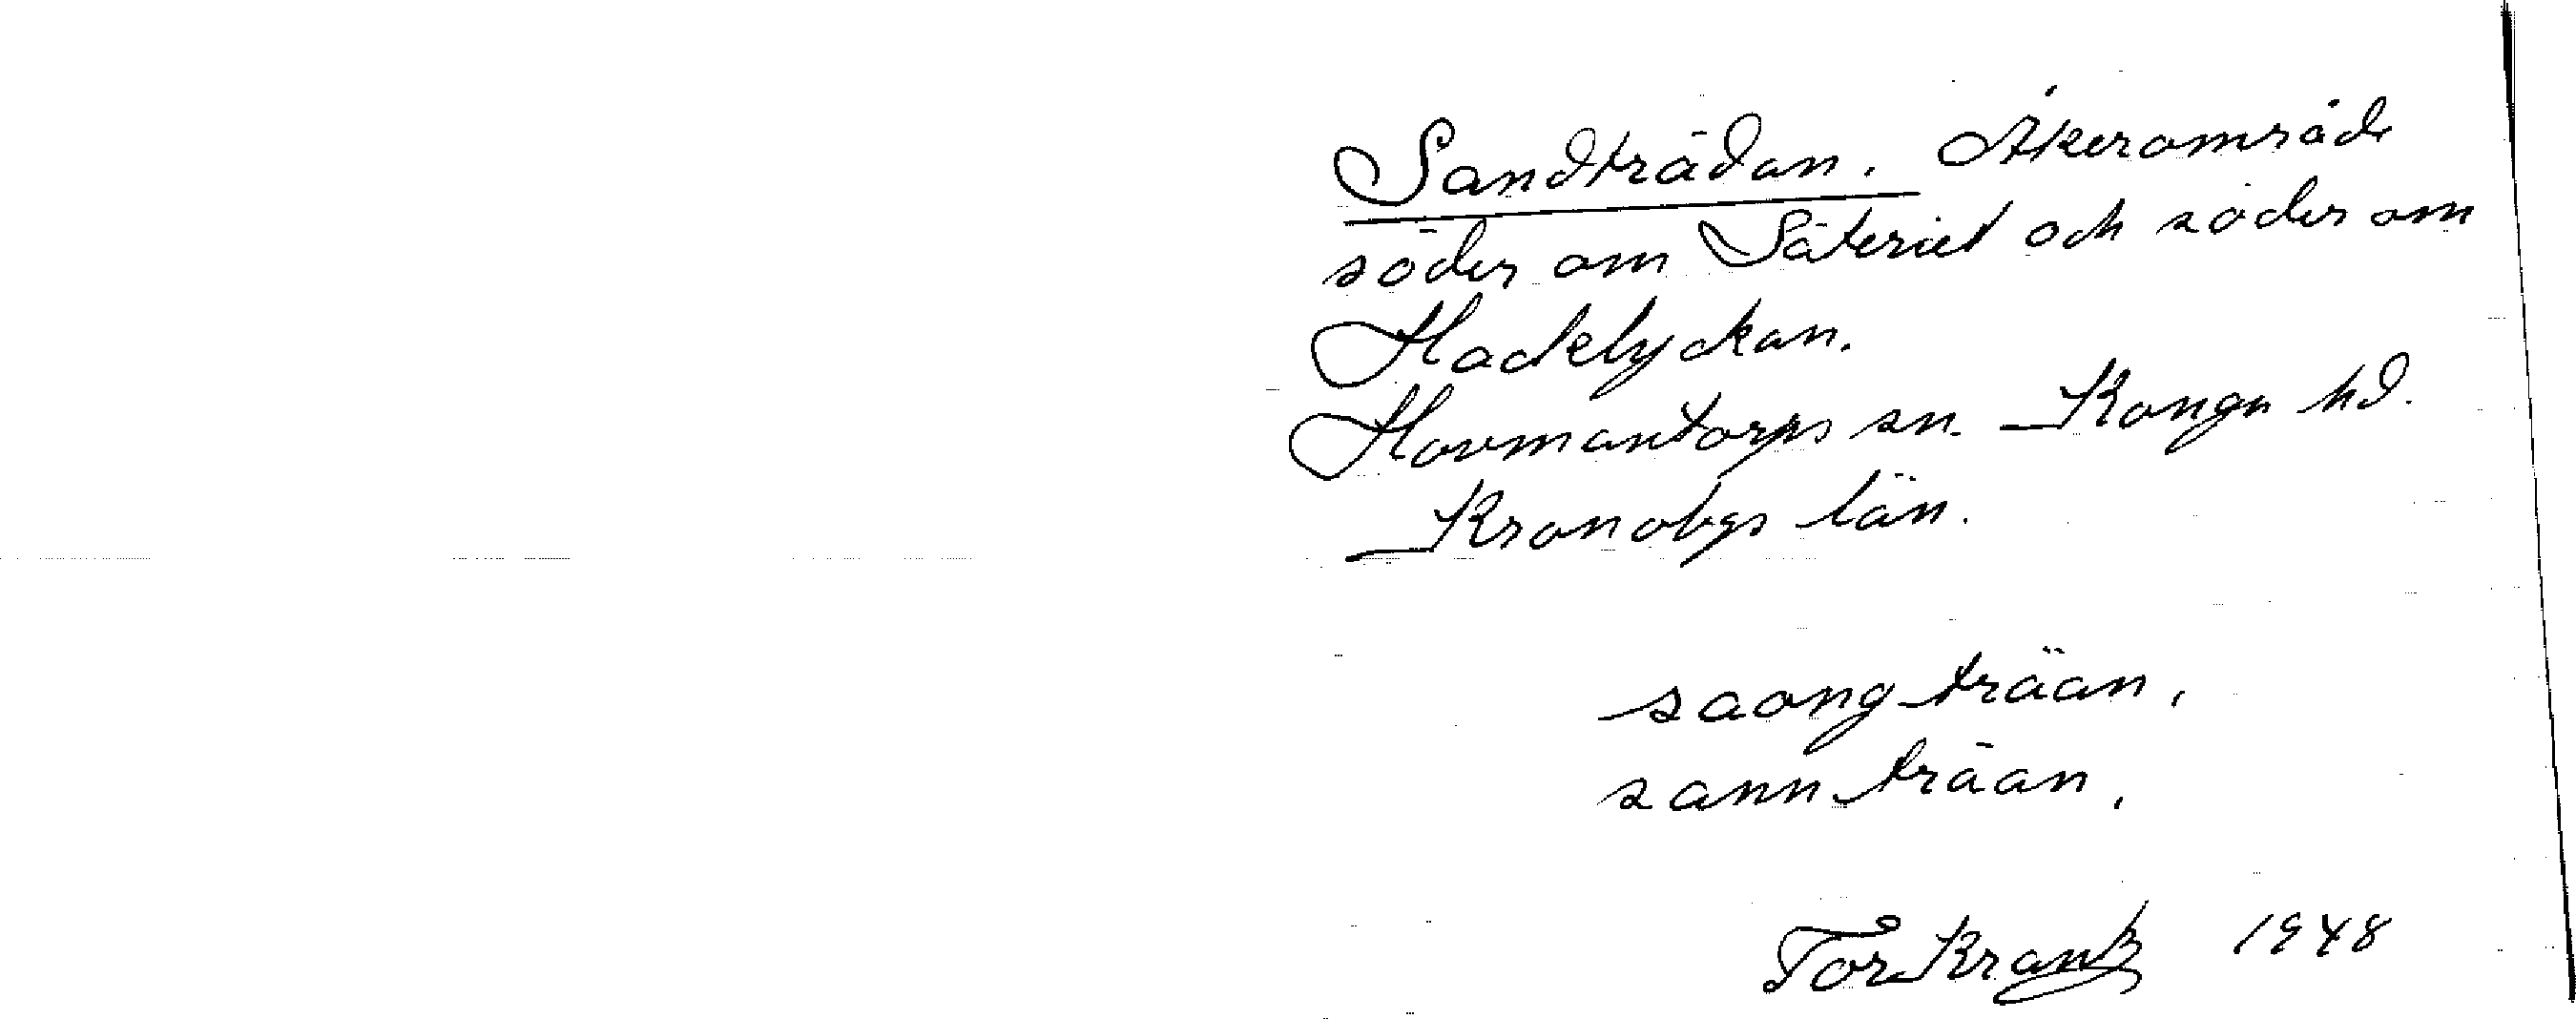 Sandträdan. Åkerområde
söder om Säteriet och söder om
Hackelyckan.
Hovmantorps sn. Konga hd.
Kronobgs län.
saongträan,
sannträan,
Tor Krantz 1948